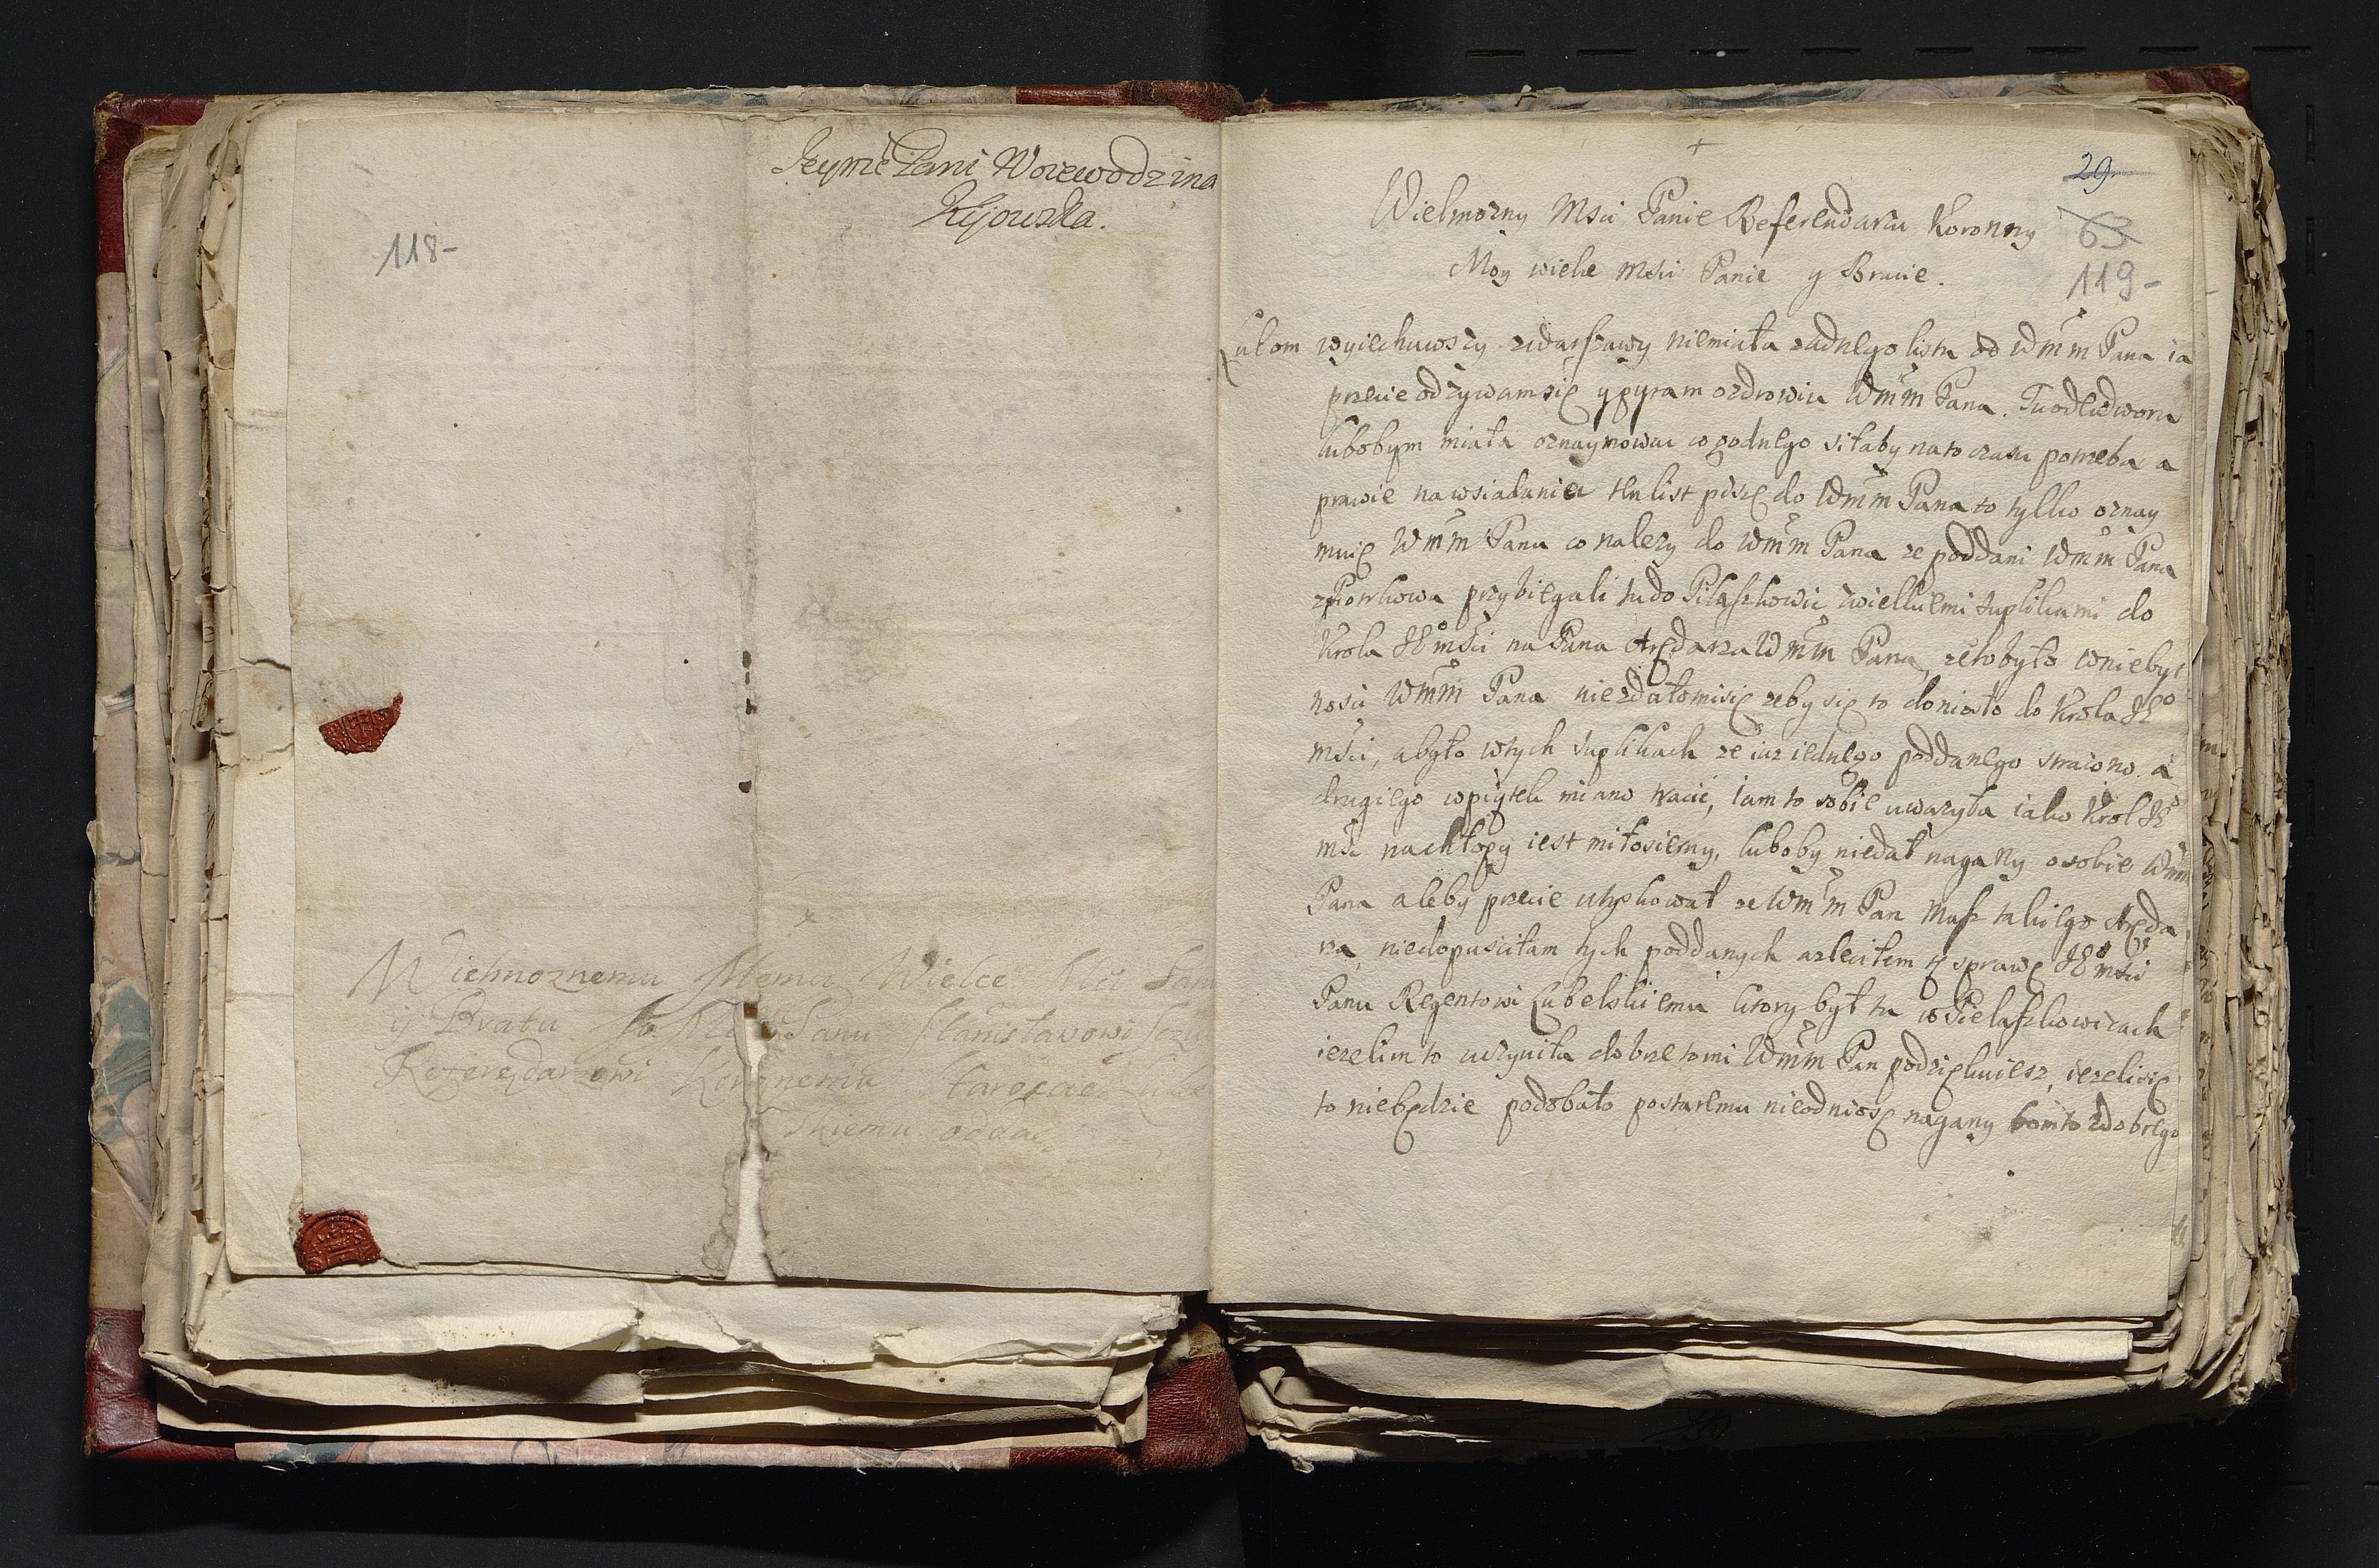 Jeymć Pani Woiewodzina
Kijowska.
118-
Wielmoznemu Memu Wielce Mći Panu
y Bratu Panu Stanisławowi
Referędarzowi Koronnemu
skiemu oddać
+
29
Wielmozny Msci Panie Referendarzu Koronny
63
Moy wielce Msci Panie y Bracie.
119-
Lubom wyiechawszy zWarszawy niemiała zadnego listu od WMM Pana ia
przecie odzywamsię ypytam ozdrowiu WMM Pana. Tu odedworu
lubobym miała oznaymowac co godnego siłaby nato czasu potrzeba a
prawie nawsiadaniu ten list piszę do WMM Pana to tylko oznay
muię WMM Panu co nalezy do WMM Pana ze poddani WMM Pana
zPiotrkowa przybiegali tudo Pilaszkowic zwielkiemi suplikami do
Krola JEmsci na Pana Arędarza WMM Pana, zetobyło wniebyt
nosci WMM Pana niezdałomisię zeby się to doniosło do Krola JE
msci, abyło wtych suplikach ze iuz iednego poddanego stracono a
drugiego wpiątek miano tracic, iam to sobie uwazyła iako Krol JE
mśc nachłopy iest miłosierny, luboby niedał nagany osobie WMM
Pana aleby przecie utyskował ze WMM Pan masz takiego Aręda
rza, niedopusciłam tych poddanych azleciłem tę sprawę JEmsci
Panu Regentowi Lubelskiemu ktory był tu wPielaszkowicach
iezelim to uczyniła dobrze tomi WMM Pan podziękuiesz, iezelisię
to niebędzie podobało postaremu nieodniosę nagany bomto zdobrego